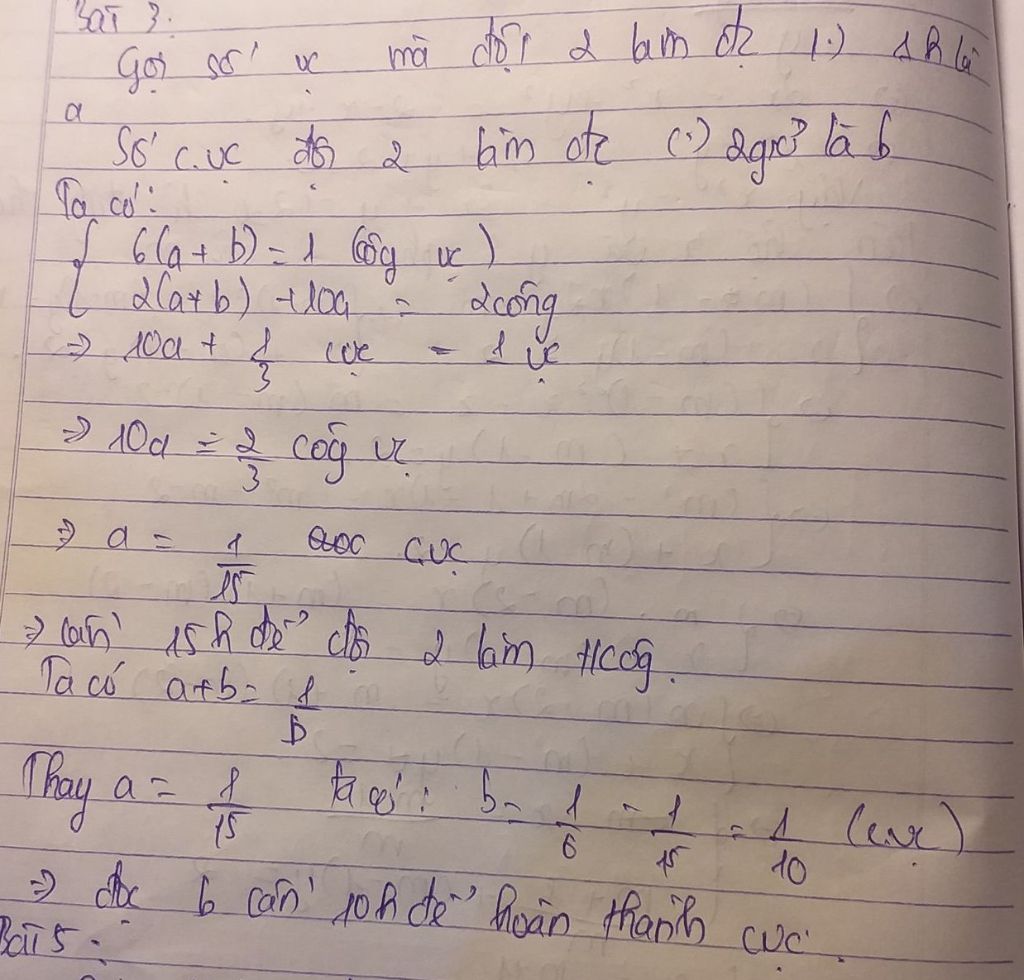 Bài 3:
Gọi số vc mà đội 2 làm đc (.) 1h là
a
Số c.vc đội 2 làm đc (.) 2giờ là b
Ta có:
6(a + b) = 1 (côg vc)
2(a+b) + 10a = 2công
=> 10a + 1/3 cvc = 1 vc
=> 10a = 2/3 côg vc
=> a = 1/15 cvc
=> cần 15h để đội 2 làm công.
Ta có a+b = 1/6
Thay a = 1/15 ta có: b = 1/6 - 1/15 = 1/10 (c.vc)
=> b cần 10h để hoàn thành cvc.
Bài 5: